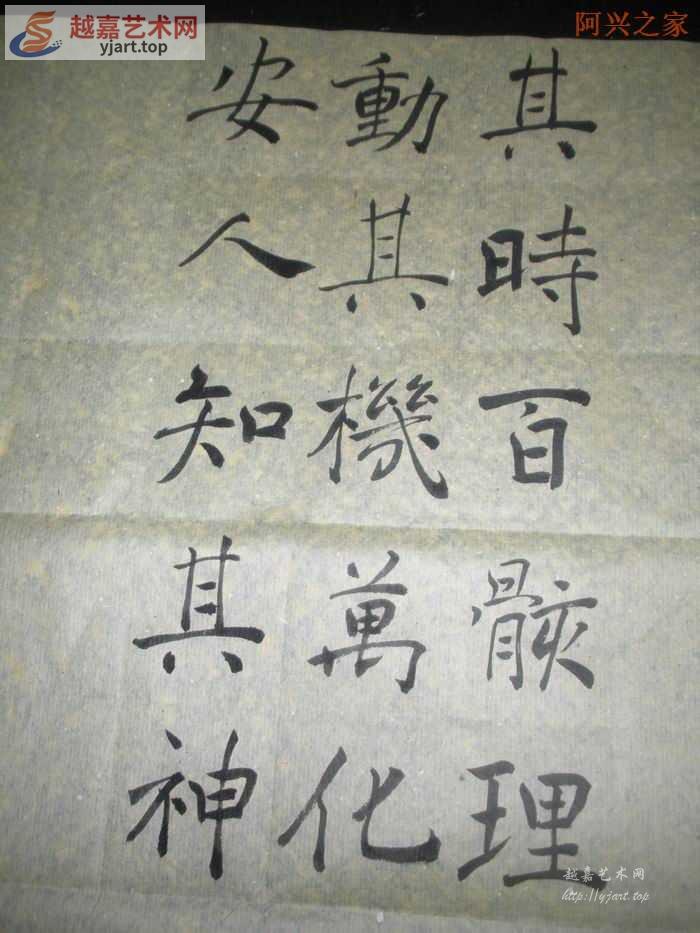 越嘉艺术网
yjart.top
阿兴之家
其時百骸理
動其機萬化
安人知其神
越嘉艺术网
http://yjart.top